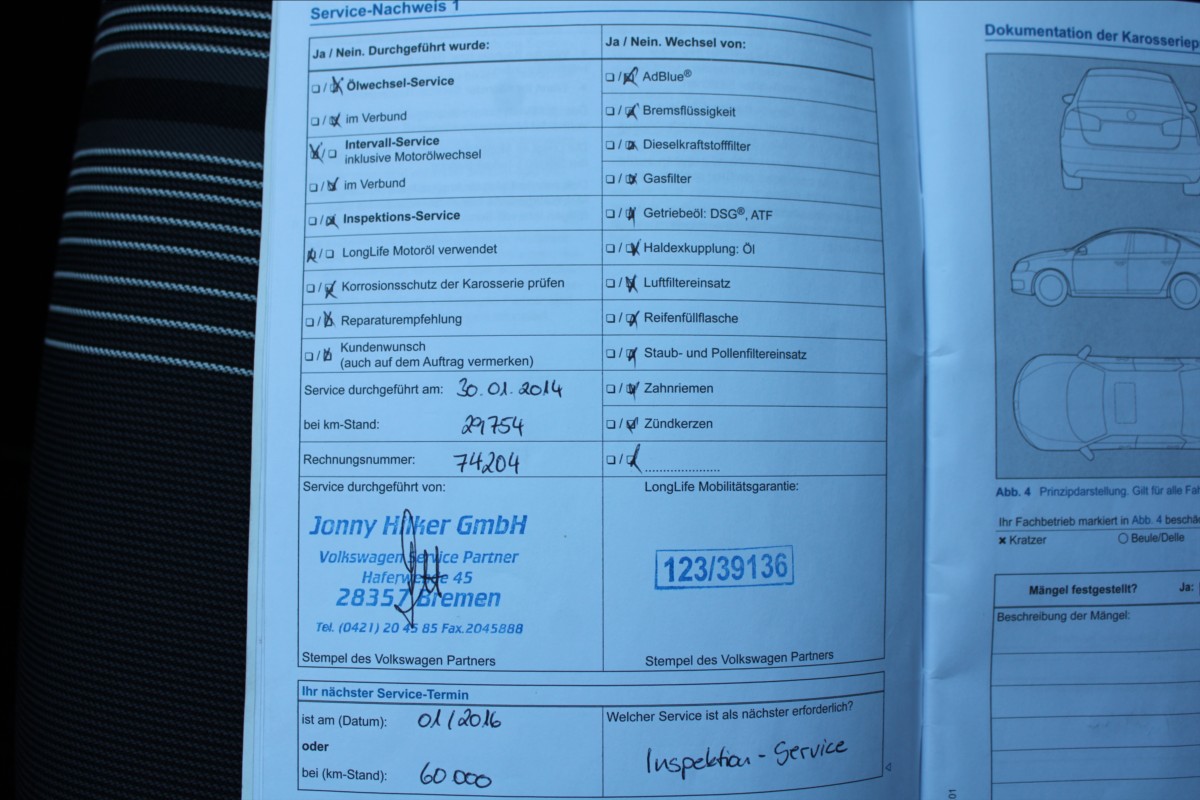 Service-Nachweis 1
Ja / Nein. Durchgeführt wurde:
Ölwechsel-Service
im Verbund
Intervall-Service
inklusive Motorölwechsel
im Verbund
Inspektions-Service
LongLife Motoröl verwendet
Korrosionsschutz der Karosserie prüfen
Reparaturempfehlung
Kundenwunsch
(auch auf dem Auftrag vermerken)
Service durchgeführt am: 30.01.2014
bei km-Stand: 29754
Rechnungsnummer: 74204
Ja / Nein. Wechsel von:
AdBlue®
Bremsflüssigkeit
Dieselkraftstofffilter
Gasfilter
Getriebeöl: DSG®, ATF
Haldexkupplung: Öl
Luftfiltereinsatz
Reifenfüllflasche
Staub- und Pollenfiltereinsatz
Zahnriemen
Zündkerzen
Service durchgeführt von:
Jonny Hilker GmbH
Volkswagen Service Partner
Haferwende 45
28357 Bremen
Tel. (0421) 20 45 85 Fax.2045888
Stempel des Volkswagen Partners
LongLife Mobilitätsgarantie:
123/39136
Stempel des Volkswagen Partners
Ihr nächster Service-Termin
ist am (Datum): 01/2016
oder
bei (km-Stand): 60 000
Welcher Service ist als nächster erforderlich?
Inspektion - Service
Dokumentation der Karosseriep
Abb. 4 Prinzipdarstellung. Gilt für alle Fa
Ihr Fachbetrieb markiert in Abb. 4 beschä
Kratzer
Beule/Delle
Mängel festgestellt? Ja:
Beschreibung der Mängel:
01